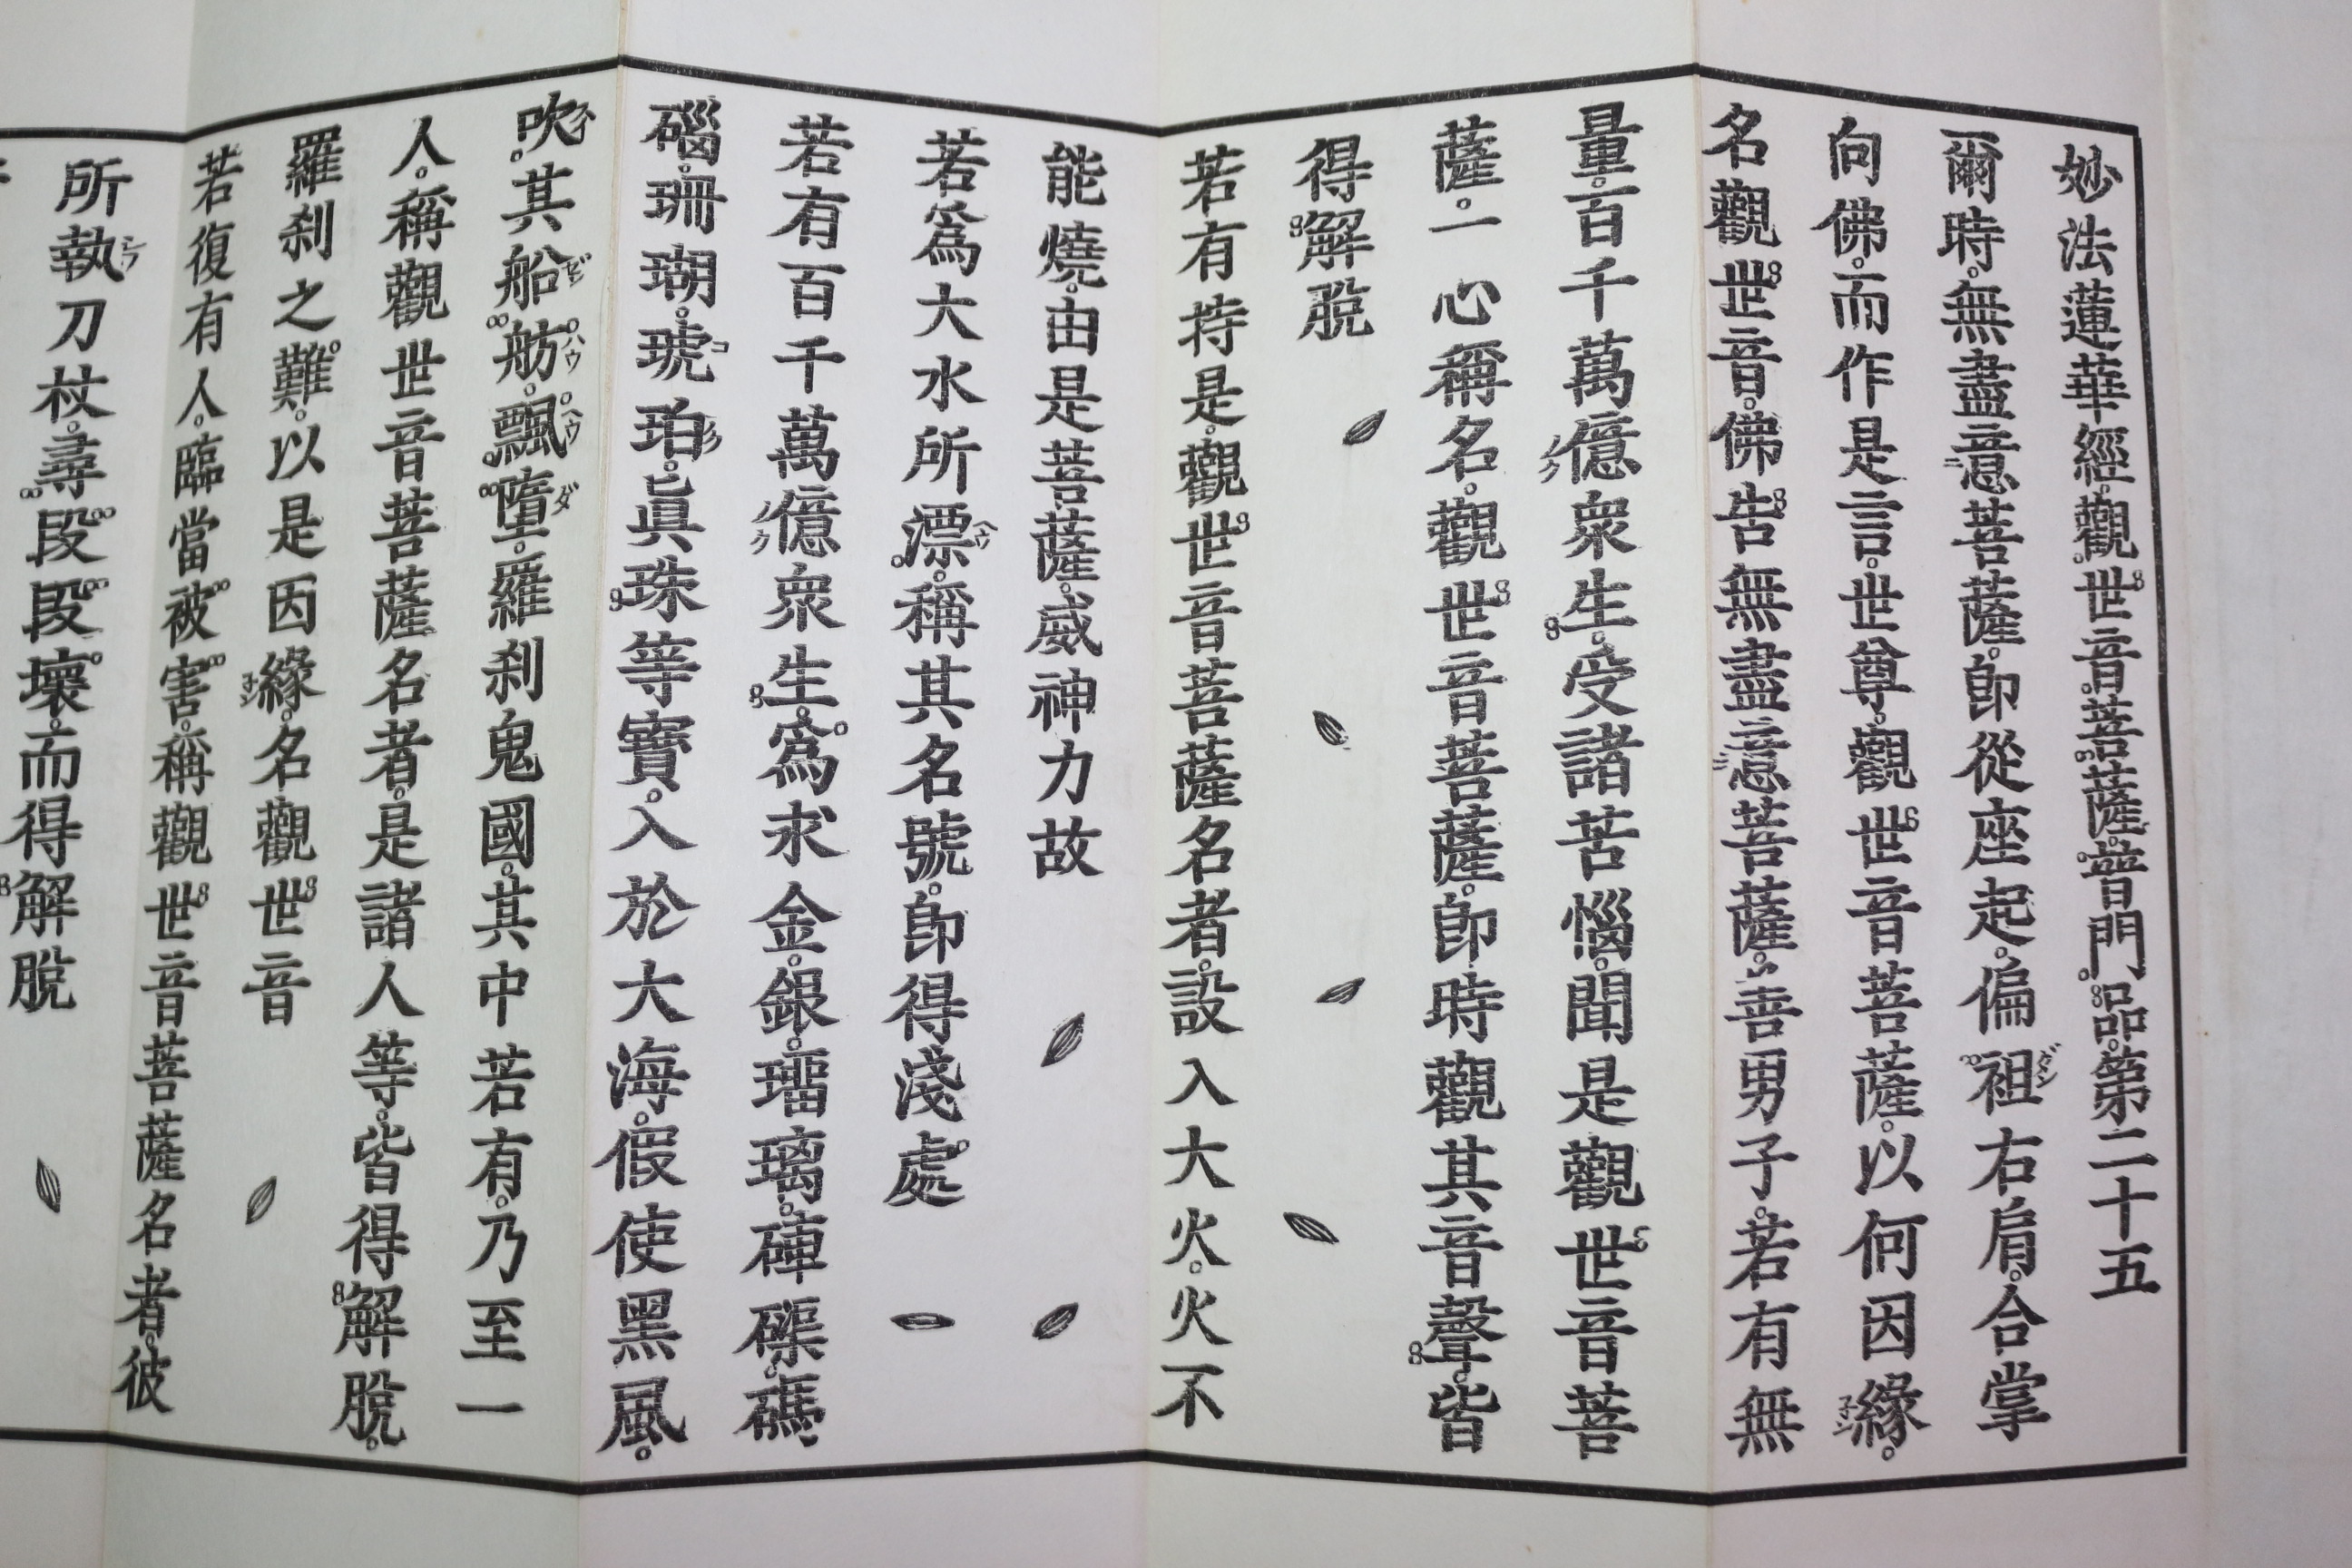 妙法蓮華經觀世音菩薩普門品第二十五
爾時。無盡意菩薩。卽從座起。偏袒右肩。合掌
向佛。而作是言。世尊。觀世音菩薩。以何因緣。
名觀世音。佛告無盡意菩薩。善男子。若有無
量。百千萬億衆生。受諸苦惱。聞是觀世音菩
薩。一心稱名。觀世音菩薩。卽時觀其音聲。皆
得解脫
若有持是。觀世音菩薩名者。設入大火。火不
能燒。由是菩薩。威神力故
若爲大水所漂。稱其名號。卽得淺處
若有百千萬億衆生。爲求金。銀。瑠璃。硨磲。碼
碯。珊瑚。琥珀。眞珠等寶。入於大海。假使黑風。
吹其船舫。飄墮。羅刹鬼國。其中若有。乃至一
人。稱觀世音菩薩名者。是諸人等。皆得解脫。
羅刹之難。以是因緣。名觀世音
若復有人。臨當被害。稱觀世音菩薩名者。彼
所執刀杖。尋段段壞。而得解脫